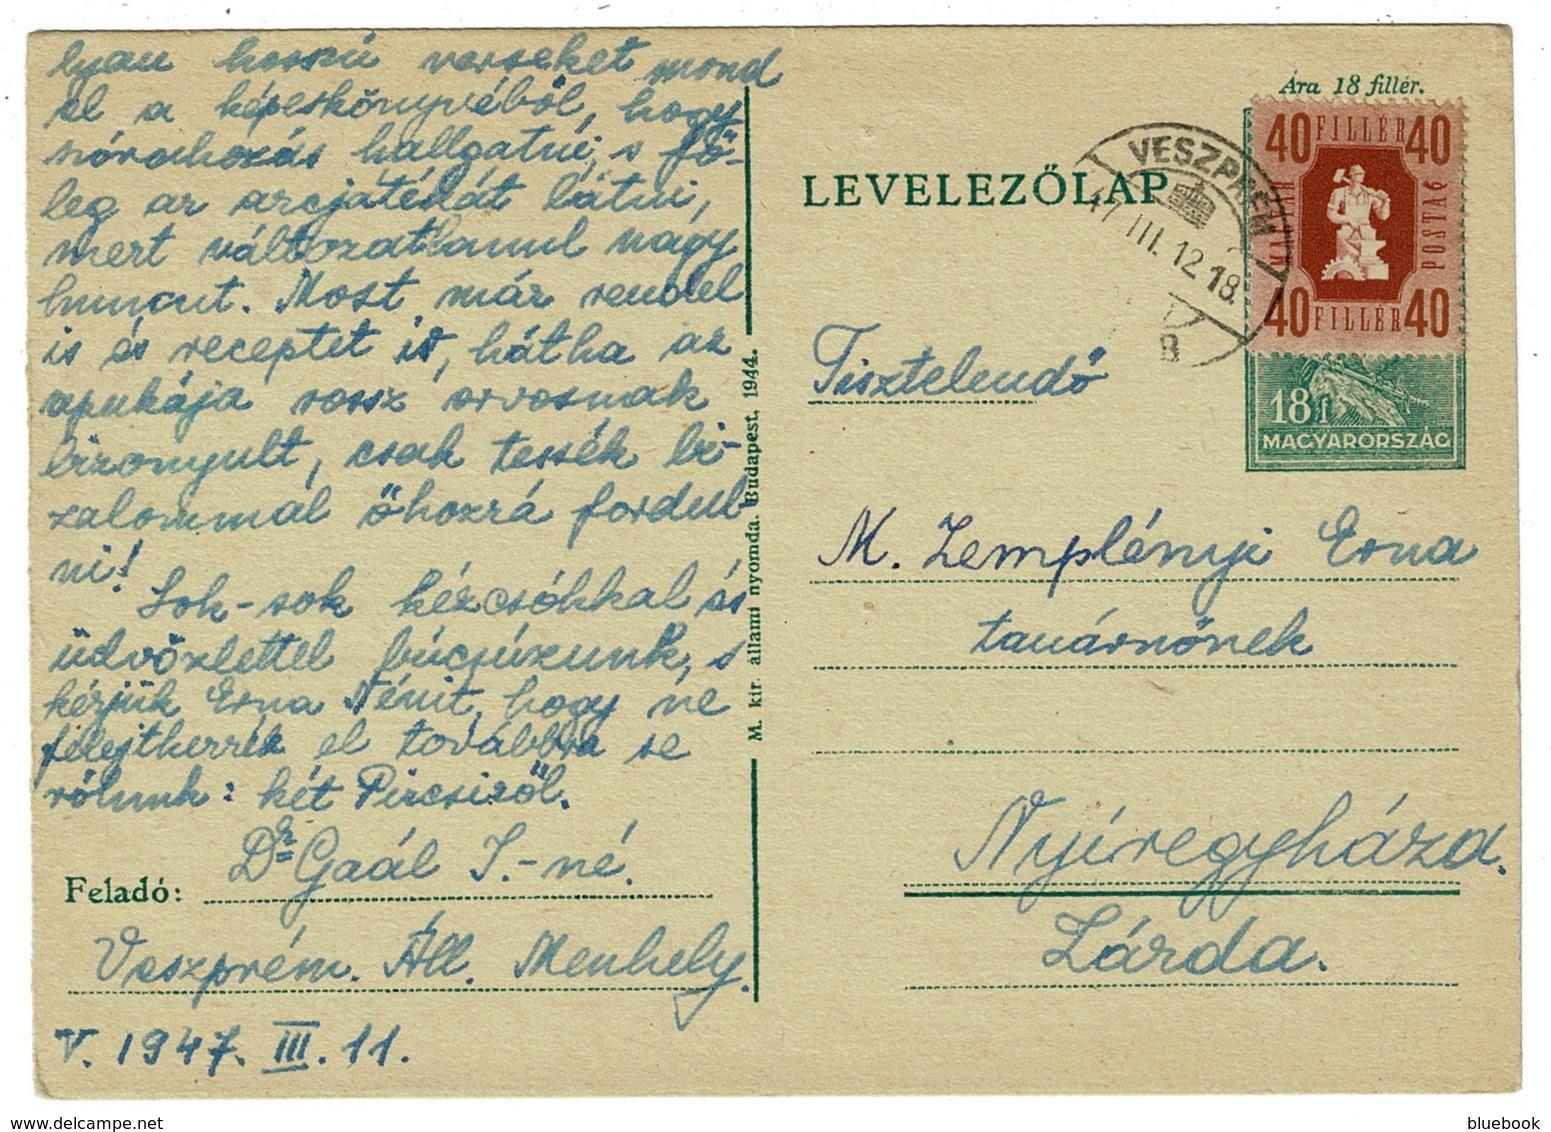 lyan hosszú verseket mond
el a képeskönyvéből, hogy
szórakozás hallgatni, s fő-
leg az arcjátékát látni,
mert változatlanul nagy
huncut. Most már rendel
is és receptet ír, hátha az
apukája rossz orvosnak
bizonyult, csak tessék bi-
zalommal őhozzá fordul-
ni!
Sok-sok kézcsókkal és
üdvözlettel búcsúzunk, s
kérjük Erna Nénit, hogy ne
felejtkezzék el továbbra se
rólunk: két Pircsiről.
Dr Gaál I.-né.
Feladó:
Veszprém. Áll. Menhely.
V. 1947. III. 11.
M. kir. állami nyomda. Budapest, 1944.
Ára 18 fillér.
LEVELEZŐLAP
VESZPRÉM
47 III. 12 18
B
40 FILLÉR 40
MAGYAR POSTA
40 FILLÉR 40
18 f
MAGYARORSZÁG
Tisztelendő
M. Zemplényi Erna
tanárnőnek
Nyíregyháza.
Zárda.
bluebook